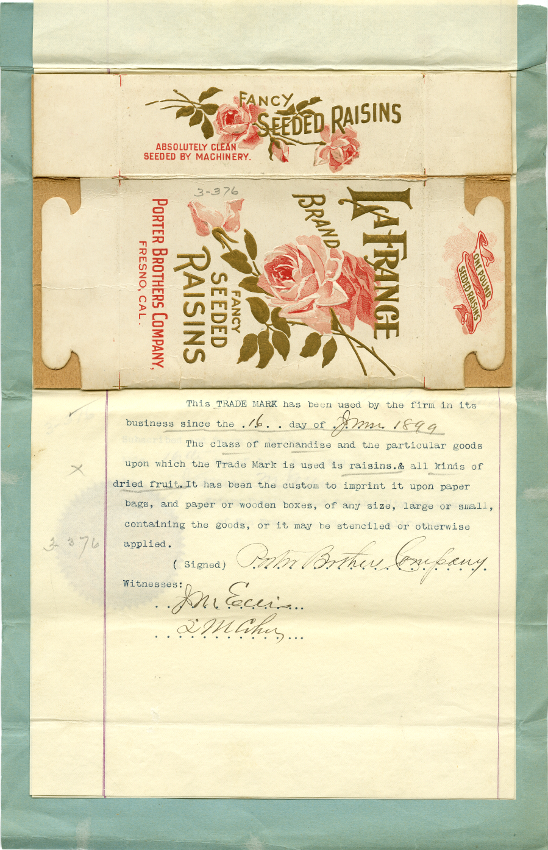 FANCY
SEEDED RAISINS
ABSOLUTELY CLEAN
SEEDED BY MACHINERY.
3-376
LA FRANCE
BRAND
FANCY
SEEDED
RAISINS
PORTER BROTHERS COMPANY,
FRESNO, CAL.
ONE POUND
SEEDED RAISINS
This TRADE MARK has been used by the firm in its
business since the .16. . day of June 1899
The class of merchandise and the particular goods
upon which the Trade Mark is used is raisins.& all kinds of
dried fruit.It has been the custom to imprint it upon paper
bags, and paper or wooden boxes, of any size, large or small,
containing the goods, or it may be stenciled or otherwise
applied.
3-376
( Signed) Porter Brothers Company.
Witnesses:
J.M.